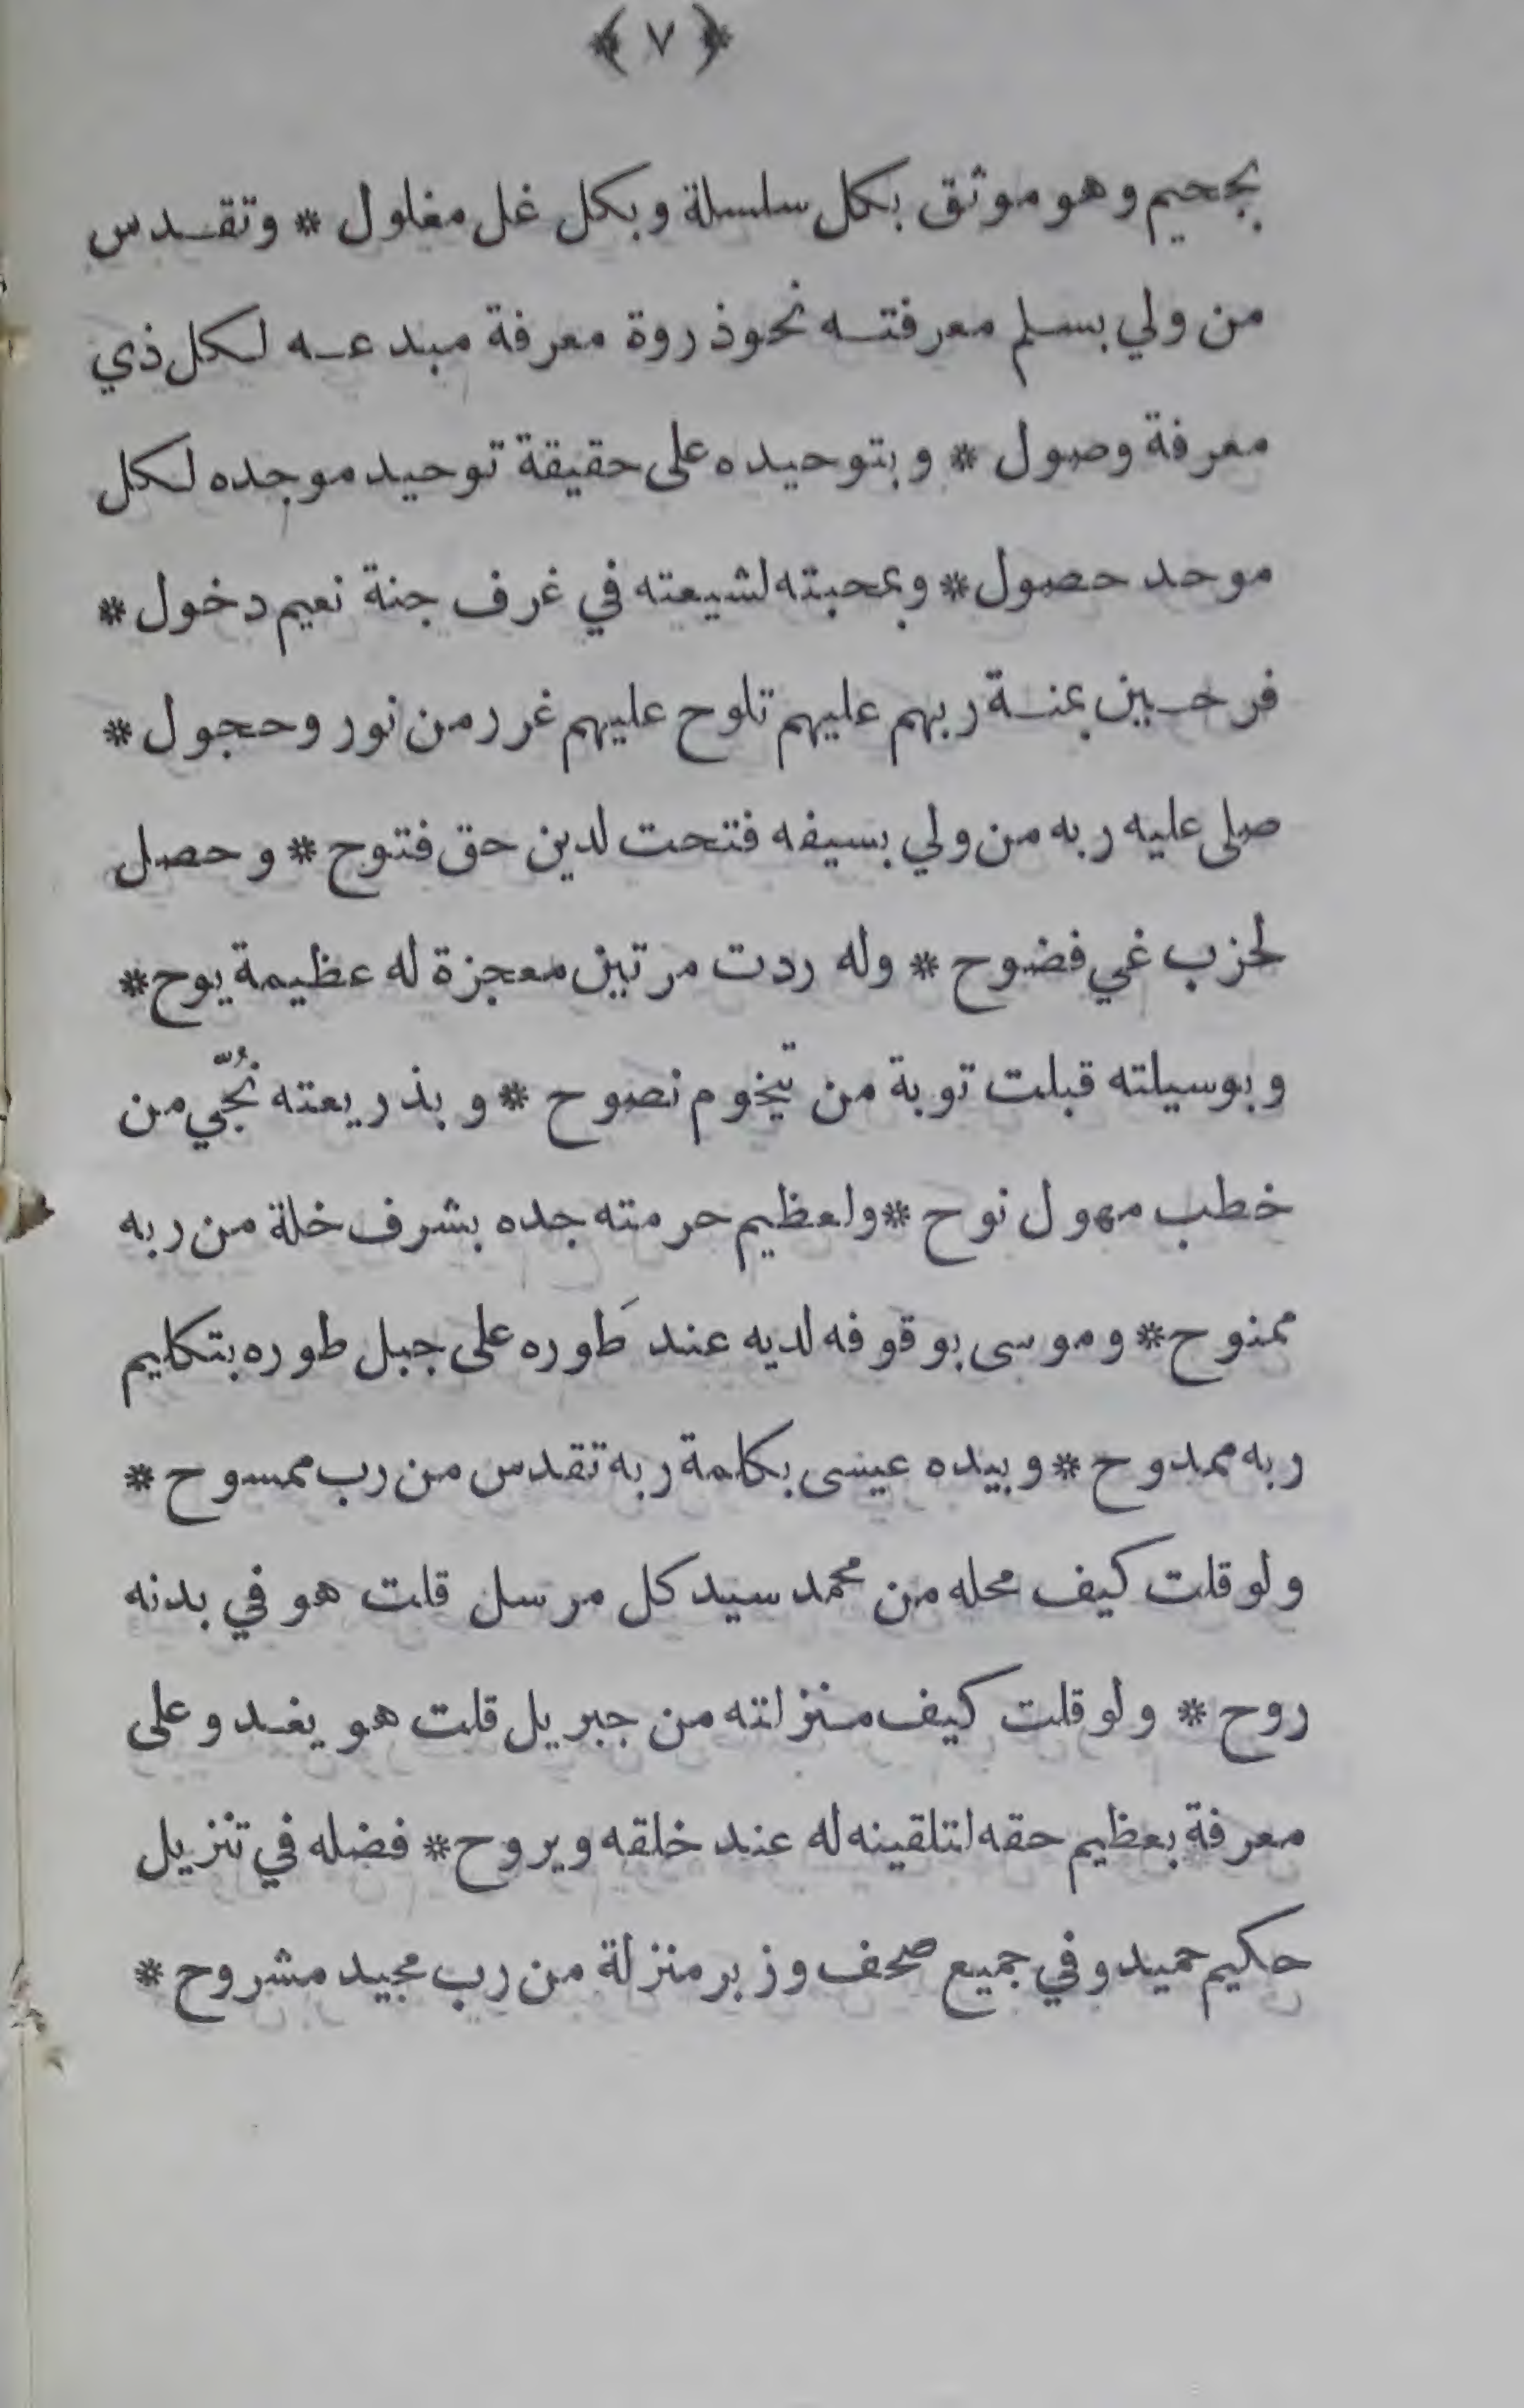 ﴿ ٧ ﴾
بجحيم وهو موثق بكل سلسلة وبكل غل مغلول * وتقدس
من ولي بسلم معرفته نحو ذروة معرفة مبدعه لكل ذي
معرفة وصول * وبتوحيده على حقيقة توحيد موجده لكل
موحد حصول * وبمحبته لشيعته في غرف جنة نعيم دخول *
فرحين بمنة ربهم عليهم تلوح عليهم غرر من نور وحجول *
صلى عليه ربه من ولي بسيفه فتحت لدين حق فتوح * وحصل
لحزب غي فضوح * وله ردت مرتين معجزة له عظيمة يوح *
وبوسيلته قبلت توبة من تيخوم نصوح * وبذريعته نُجّي من
خطب مهول نوح * ولعظيم حرمته جده بشرف خلة من ربه
ممنوح * وموسى بوقوفه لديه عند طَوره على جبل طوره بتكليم
ربه ممدوح * وبيده عيسى بكلمة ربه تقدس من رب ممسوح *
ولو قلت كيف محله من محمد سيد كل مرسل قلت هو في بدنه
روح * ولو قلت كيف منزلته من جبريل قلت هو يغدو على
معرفة بعظيم حقه لتلقينه له عند خلقه ويروح * فضله في تنزيل
حكيم حميد وفي جميع صحف وزبر منزلة من رب مجيد مشروح *